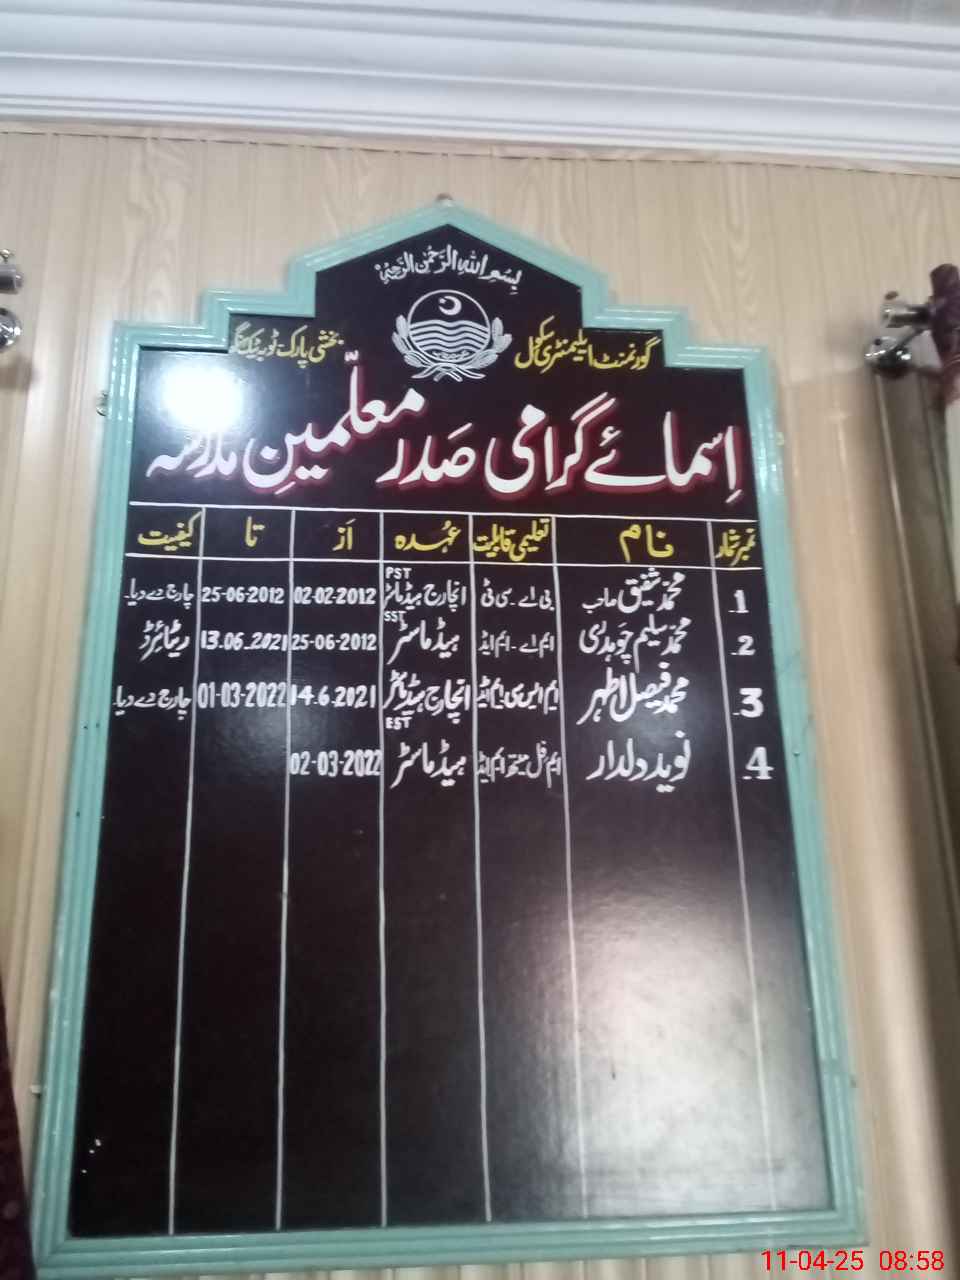 بِسْمِ اللهِ الرَّحْمٰنِ الرَّحِيْمِ
گورنمنٹ ایلیمنٹری سکول بخشی پارک ٹوبہ ٹیک سنگھ
اسمائے گرامی صدر معلّمینِ مدرسہ
نمبر شمار نام تعلیمی قابلیت عہدہ از تا کیفیت
PST
1 محمد شفیق صاحب بی اے ۔ سی ٹی انچارج ہیڈ ماسٹر 02-02-2012 25-06-2012 چارج دے دیا۔
SST
2 محمد سلیم چوہدری ایم اے ۔ ایم ایڈ ہیڈ ماسٹر 25-06-2012 13.06.2021 ریٹائرڈ
3 محمد فیصل اطہر ایم ایس سی ایم ایڈ انچارج ہیڈ ماسٹر 14.6.2021 01-03-2022 چارج دے دیا۔
EST
4 نوید دلدار ایم فل میتھ ایم ایڈ ہیڈ ماسٹر 02-03-2022
11-04-25 08:58